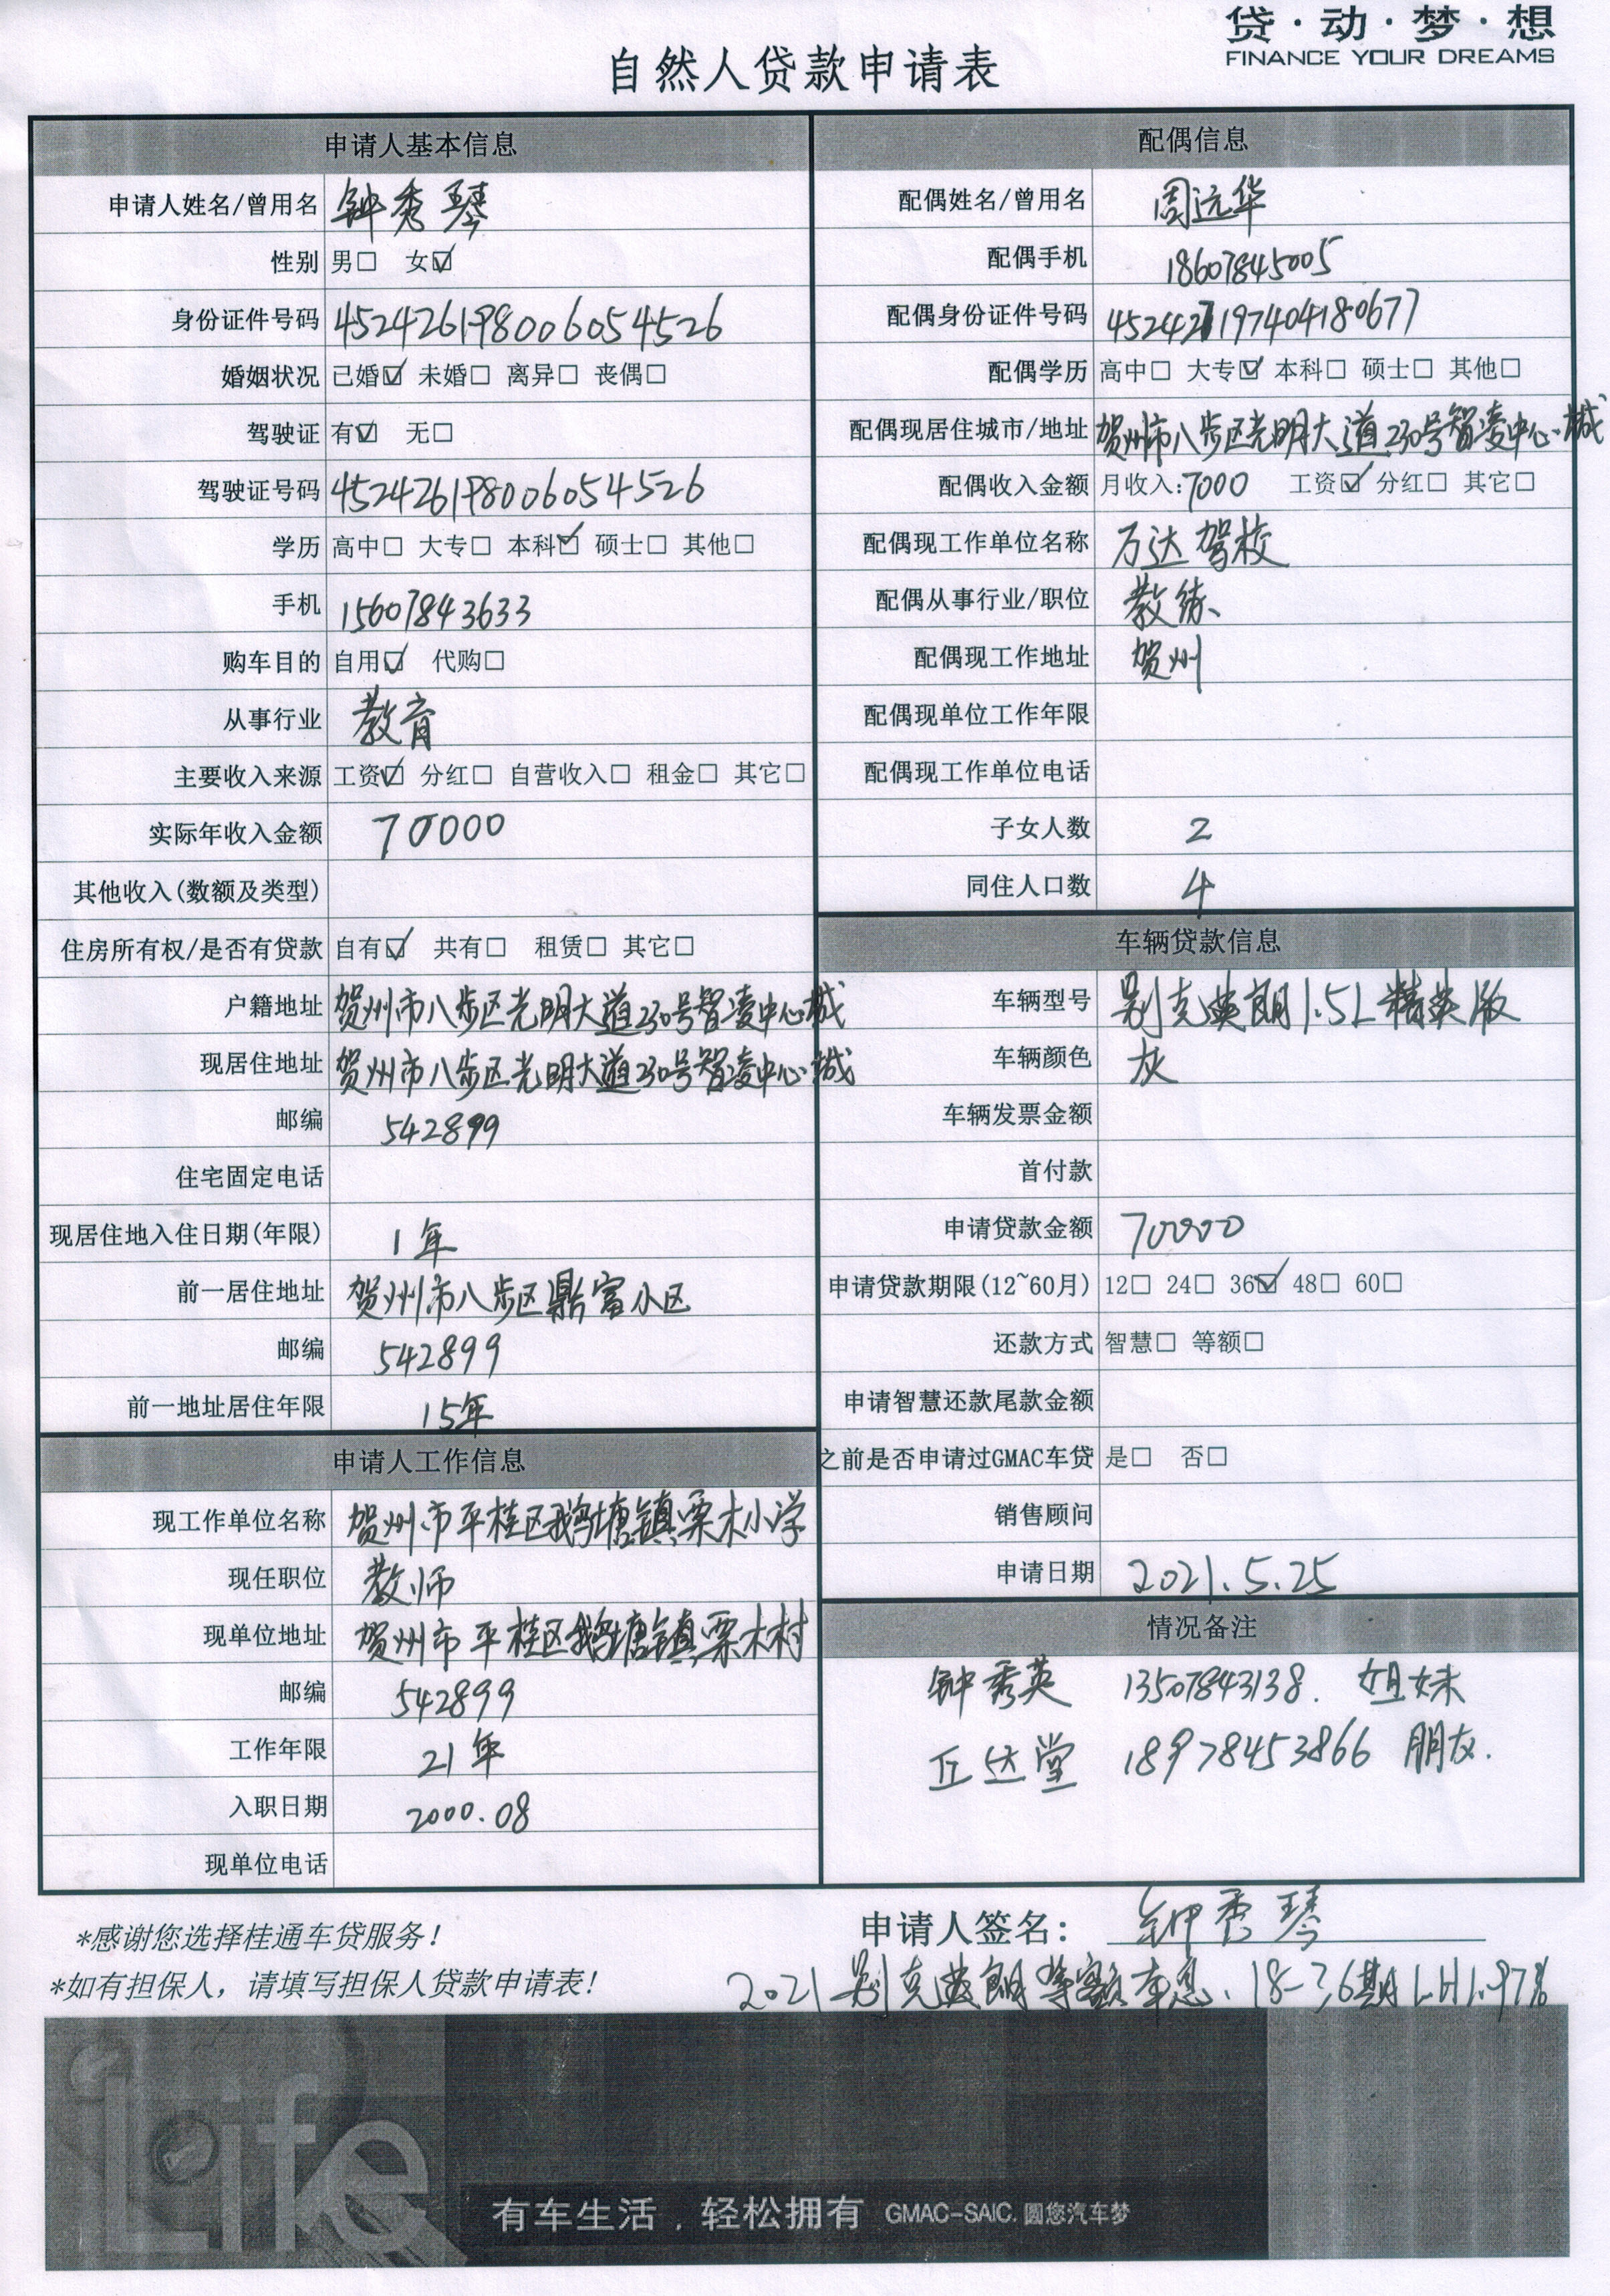 贷·动·梦·想
FINANCE YOUR DREAMS
自然人贷款申请表
申请人基本信息
申请人姓名/曾用名 钟秀琴
性别 男□ 女☑
身份证件号码 452426198006054526
婚姻状况 已婚☑ 未婚□ 离异□ 丧偶□
驾驶证 有☑ 无□
驾驶证号码 452426198006054526
学历 高中□ 大专□ 本科☑ 硕士□ 其他□
手机 15607843633
购车目的 自用☑ 代购□
从事行业 教育
主要收入来源 工资☑ 分红□ 自营收入□ 租金□ 其它□
实际年收入金额 70000
其他收入(数额及类型)
住房所有权/是否有贷款 自有☑ 共有□ 租赁□ 其它□
户籍地址 贺州市八步区光明大道230号智凌中心城
现居住地址 贺州市八步区光明大道230号智凌中心城
邮编 542899
住宅固定电话
现居住地入住日期(年限) 1年
前一居住地址 贺州市八步区鼎富小区
邮编 542899
前一地址居住年限 15年
申请人工作信息
现工作单位名称 贺州市平桂区鹅塘镇栗木小学
现任职位 教师
现单位地址 贺州市平桂区鹅塘镇栗木村
邮编 542899
工作年限 21年
入职日期 2000.08
现单位电话
配偶信息
配偶姓名/曾用名 周远华
配偶手机 18607845005
配偶身份证件号码 452427197404180677
配偶学历 高中□ 大专☑ 本科□ 硕士□ 其他□
配偶现居住城市/地址 贺州市八步区光明大道230号智凌中心城
配偶收入金额 月收入:7000 工资☑ 分红□ 其它□
配偶现工作单位名称 万达驾校
配偶从事行业/职位 教练
配偶现工作地址 贺州
配偶现单位工作年限
配偶现工作单位电话
子女人数 2
同住人口数 4
车辆贷款信息
车辆型号 别克英朗1.5L精英版
车辆颜色 灰
车辆发票金额
首付款
申请贷款金额 70000
申请贷款期限(12~60月) 12□ 24□ 36☑ 48□ 60□
还款方式 智慧□ 等额□
申请智慧还款尾款金额
之前是否申请过GMAC车贷 是□ 否□
销售顾问
申请日期 2021.5.25
情况备注
钟秀英 13507843138. 姐妹
丘达堂 18978453866 朋友.
申请人签名: 钟秀琴
*感谢您选择桂通车贷服务!
*如有担保人，请填写担保人贷款申请表!
2021别克英朗等额本息.18-36期L.H1.97%
Life
有车生活，轻松拥有 GMAC-SAIC.圆您汽车梦